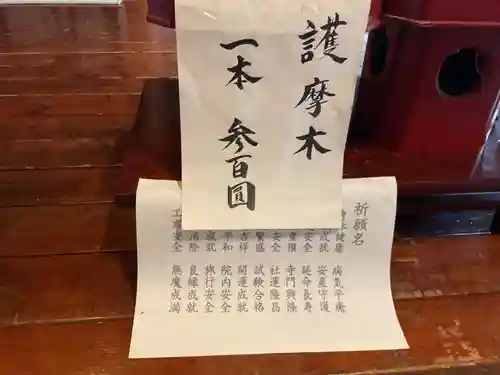 護摩木
一本 参百圓
祈願名
健康 病気平癒
成就 安産守護
安全 延命長寿
豊穣 寺門興隆
安全 社運隆昌
繁盛 試験合格
吉祥 開運成就
平和 院内安全
成就 旅行安全
消除 良縁成就
工事安全 無魔成満